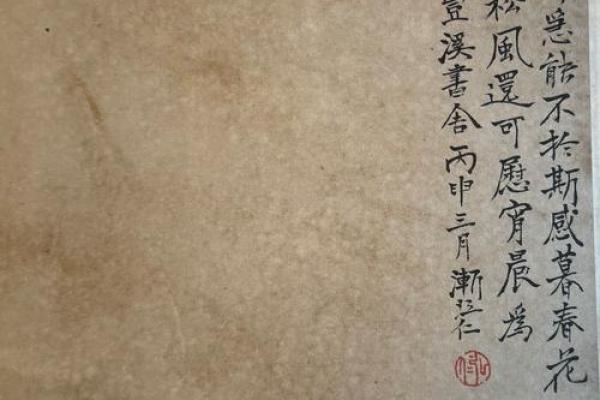 能不於斯感暮春花
松風還可慰宵晨為
溪書舍丙申三月漸仁
弘仁